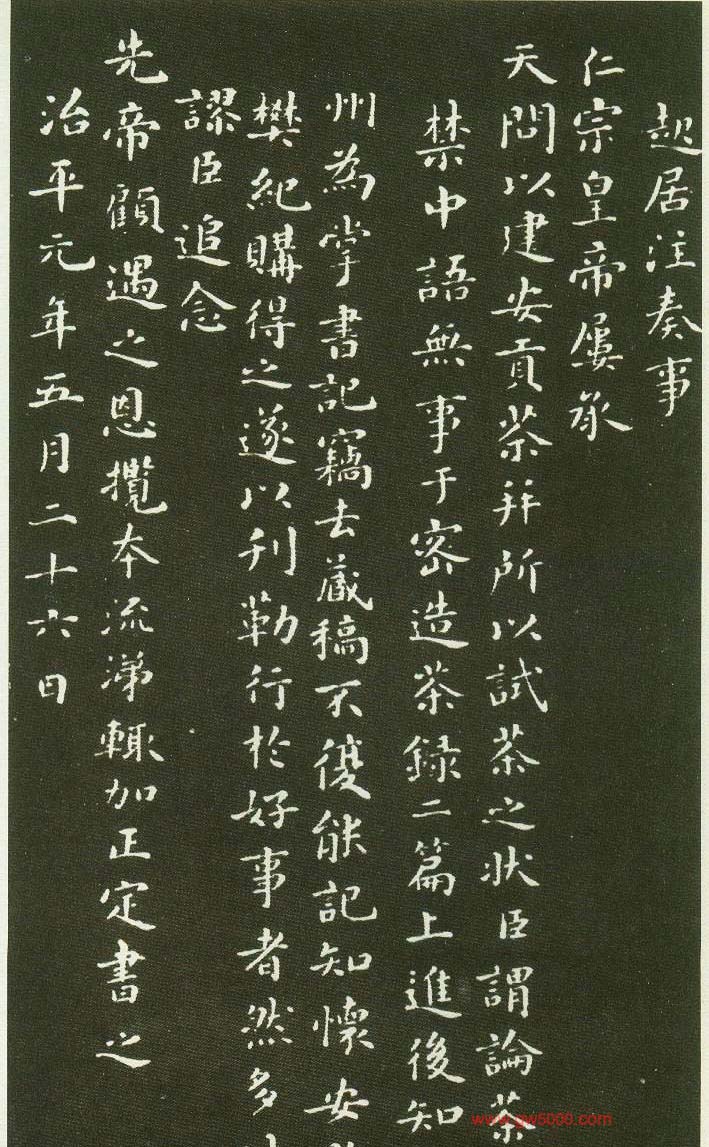 起居注奏事
仁宗皇帝屢承
天問以建安貢茶并所以試茶之狀臣謂論茶
禁中語無事于密造茶錄二篇上進後知
州為掌書記竊去藏稿不復能記知懷安
樊紀購得之遂以刊勒行於好事者然多
謬臣追念
先帝顧遇之恩攬本流涕輒加正定書之
治平元年五月二十六日
www.gw5000.com